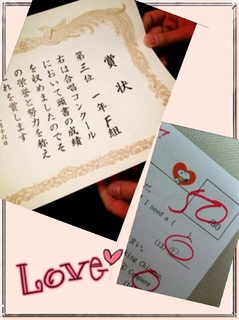 賞状
第三位 一年F組
右は合唱コンクール
において頭書の成績
を収めましたのでそ
の栄誉と努力を称え
これを賞します
月十六日
50
/80
I need a (
Germany
Love